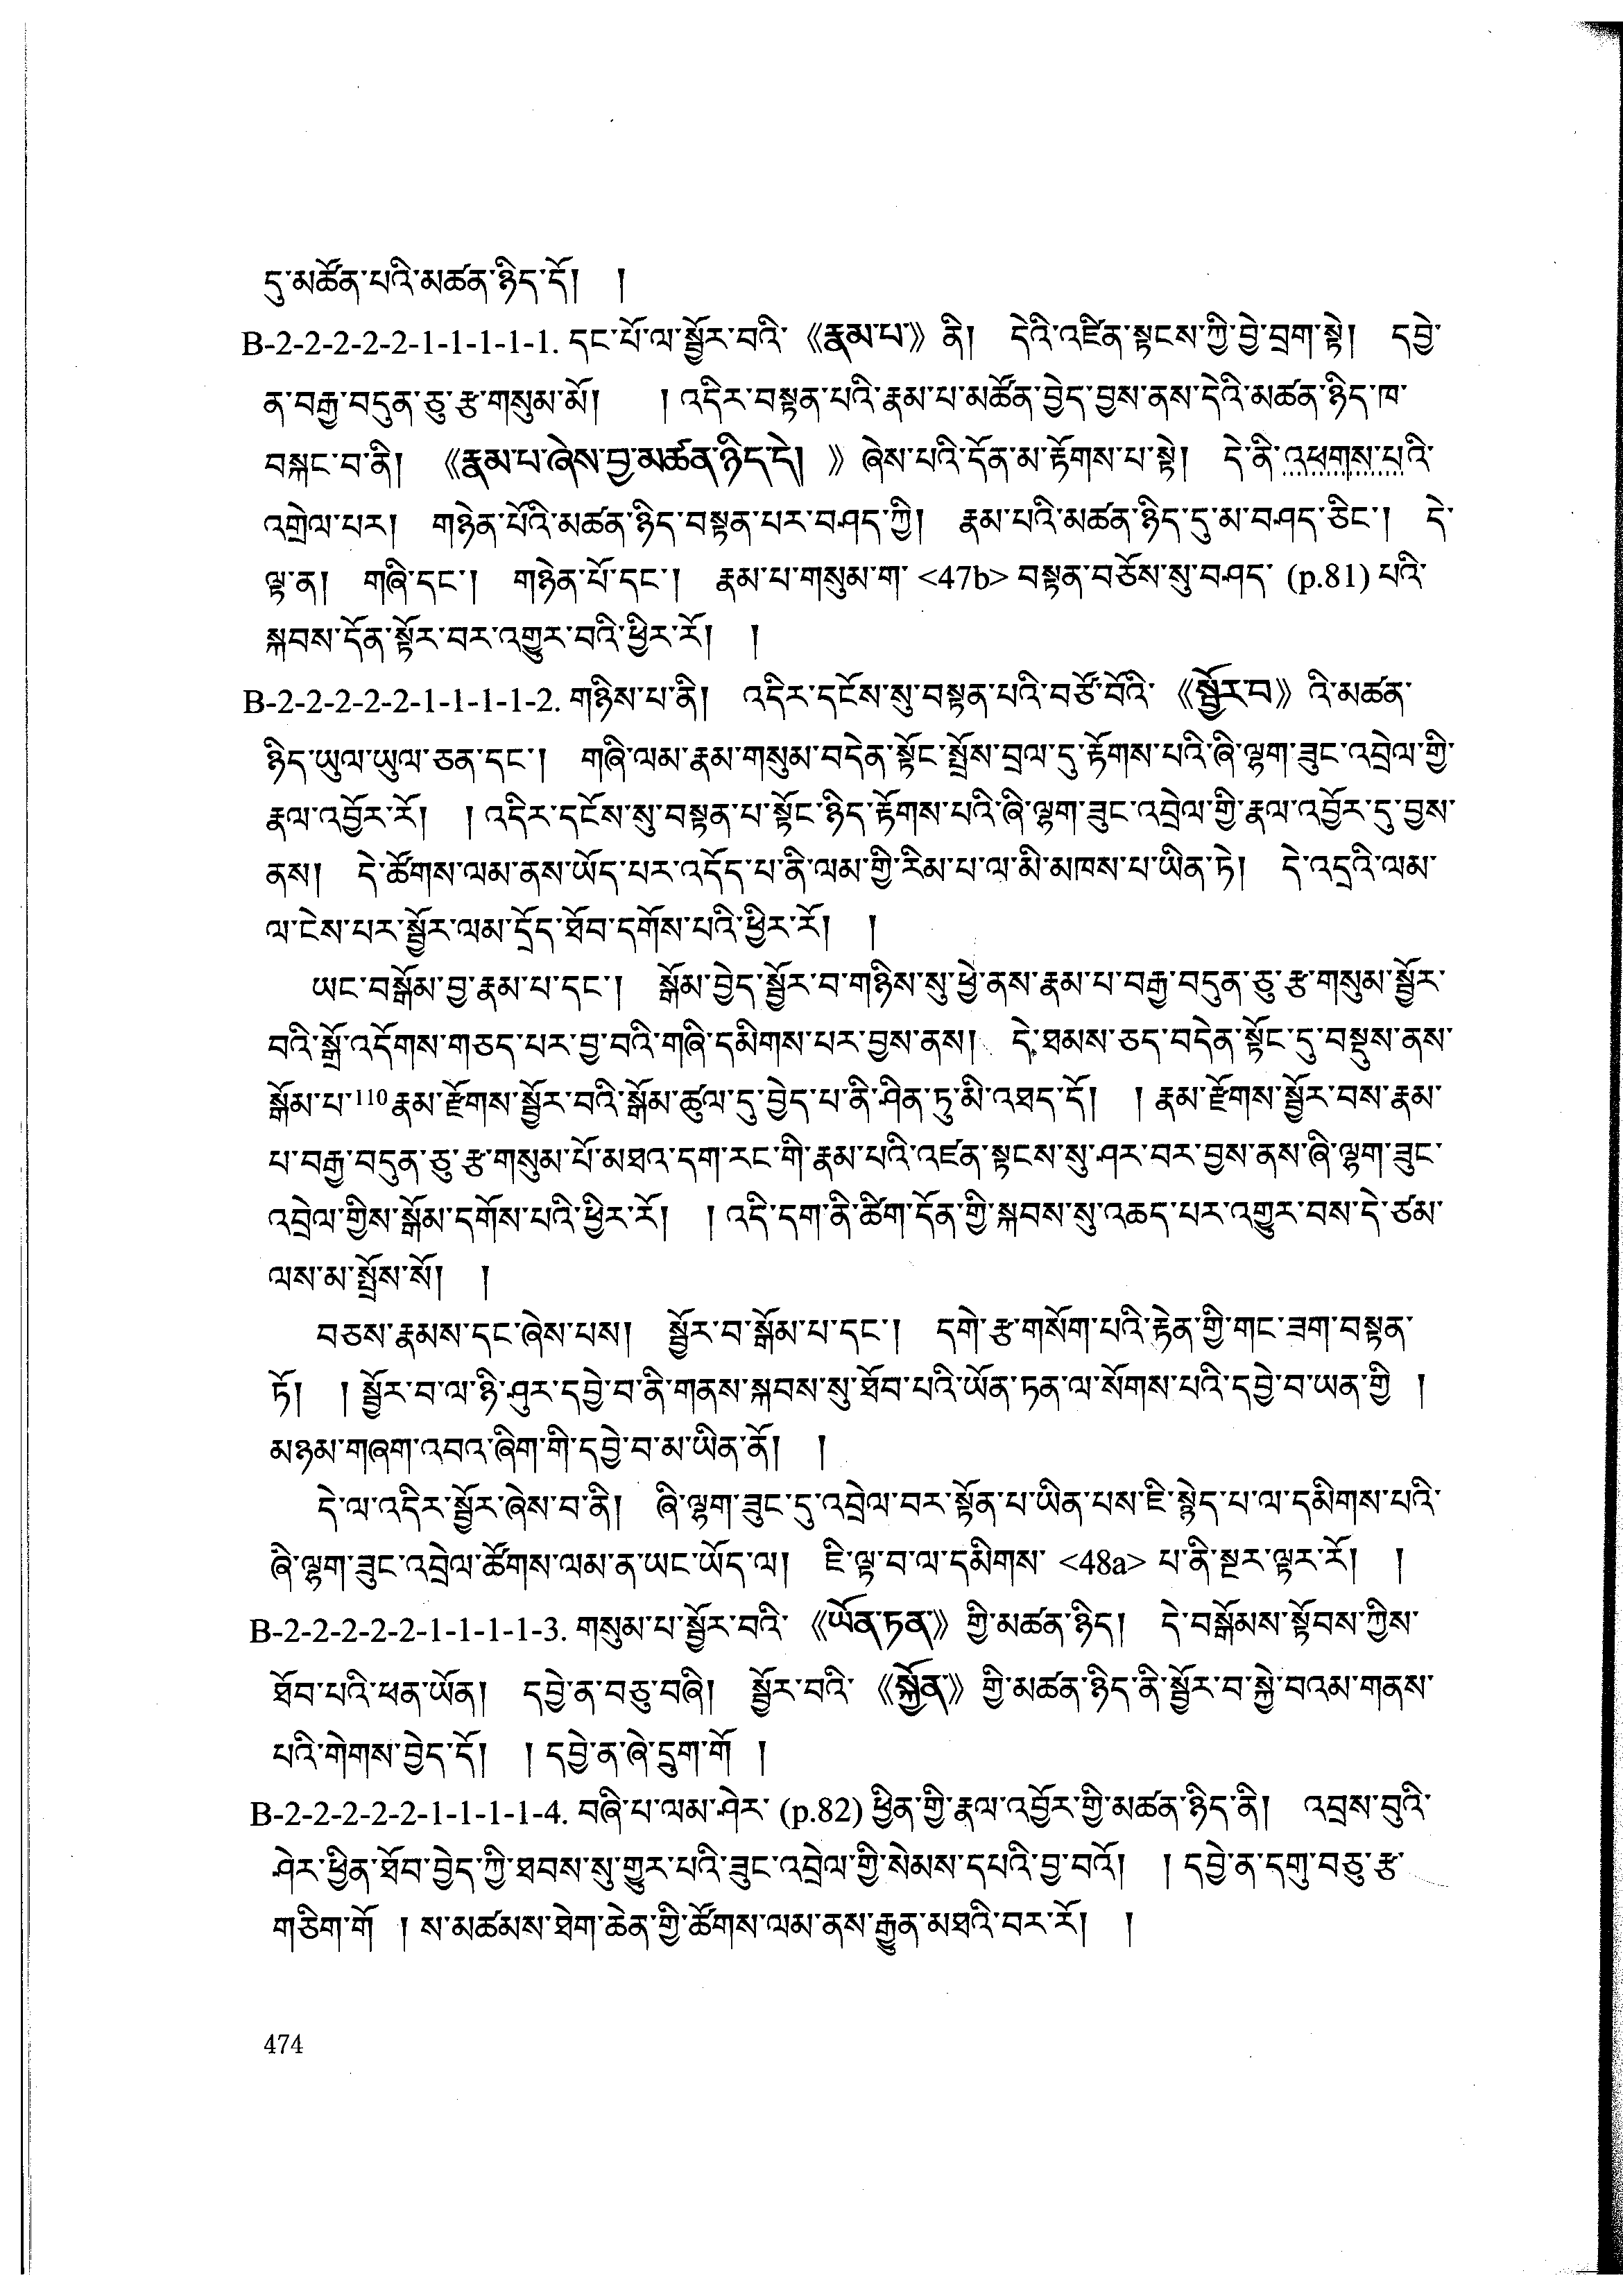 དུ་མཚོན་པའི་མཚན་ཉིད་དོ། །
B-2-2-2-2-2-1-1-1-1-1. དང་པོ་ལ་སྦྱོར་བའི་ 《རྣམ་པ་》 ནི། དེའི་འཛིན་སྟངས་ཀྱི་བྱེ་བྲག་སྟེ། དབྱེ་
ན་བརྒྱ་བདུན་ཅུ་རྩ་གསུམ་མོ། །འདིར་བསྟན་པའི་རྣམ་པ་མཚོན་བྱེད་བྱས་ནས་དེའི་མཚན་ཉིད་ཁ་
བསྐང་བ་ནི། 《རྣམ་པ་ཞེས་བྱ་མཚན་ཉིད་དེ། 》 ཞེས་པའི་དོན་མ་རྟོགས་པ་སྟེ། དེ་ནི་འཕགས་པའི་
འགྲེལ་པར། གཉེན་པོའི་མཚན་ཉིད་བསྟན་པར་བཤད་ཀྱི། རྣམ་པའི་མཚན་ཉིད་དུ་མ་བཤད་ཅིང་། དེ་
ལྟ་ན། གཞི་དང་། གཉེན་པོ་དང་། རྣམ་པ་གསུམ་ག་ <47b> བསྟན་བཅོས་སུ་བཤད་ (p.81) པའི་
སྐབས་དོན་སྟོར་བར་འགྱུར་བའི་ཕྱིར་རོ། །
B-2-2-2-2-2-1-1-1-1-2. གཉིས་པ་ནི། འདིར་དངོས་སུ་བསྟན་པའི་བཙོ་བོའི་ 《སྦྱོར་བ》 འི་མཚན་
ཉིད་ཡུལ་ཡུལ་ཅན་དང་། གཞི་ལམ་རྣམ་གསུམ་བདེན་སྟོང་སྤྲོས་བྲལ་དུ་རྟོགས་པའི་ཞི་ལྷག་ཟུང་འབྲེལ་གྱི་
རྣལ་འབྱོར་རོ། །འདིར་དངོས་སུ་བསྟན་པ་སྟོང་ཉིད་རྟོགས་པའི་ཞི་ལྷག་ཟུང་འབྲེལ་གྱི་རྣལ་འབྱོར་དུ་བྱས་
ནས། དེ་ཚོགས་ལམ་ནས་ཡོད་པར་འདོད་པ་ནི་ལམ་གྱི་རིམ་པ་ལ་མི་མཁས་པ་ཡིན་ཏེ། དེ་འདྲའི་ལམ་
ལ་ངེས་པར་སྦྱོར་ལམ་དྲོད་ཐོབ་དགོས་པའི་ཕྱིར་རོ། །
ཡང་བསྒོམ་བྱ་རྣམ་པ་དང་། སྒོམ་བྱེད་སྦྱོར་བ་གཉིས་སུ་ཕྱེ་ནས་རྣམ་པ་བརྒྱ་བདུན་ཅུ་རྩ་གསུམ་སྦྱོར་
བའི་སྒྲོ་འདོགས་གཅད་པར་བྱ་བའི་གཞི་དམིགས་པར་བྱས་ནས། དེ་ཐམས་ཅད་བདེན་སྟོང་དུ་བསྡུས་ནས་
སྒོམ་པ་110རྣམ་རྫོགས་སྦྱོར་བའི་སྒོམ་ཚུལ་དུ་བྱེད་པ་ནི་ཤིན་ཏུ་མི་འཐད་དོ། །རྣམ་རྫོགས་སྦྱོར་བས་རྣམ་
པ་བརྒྱ་བདུན་ཅུ་རྩ་གསུམ་པོ་མཐའ་དག་རང་གི་རྣམ་པའི་འཛན་སྟངས་སུ་ཤར་བར་བྱས་ནས་ཞི་ལྷག་ཟུང་
འབྲེལ་གྱིས་སྒོམ་དགོས་པའི་ཕྱིར་རོ། །འདི་དག་ནི་ཚིག་དོན་གྱི་སྐབས་སུ་འཆད་པར་འགྱུར་བས་དེ་ཙམ་
ལས་མ་སྤྲོས་སོ། །
བཅས་རྣམས་དང་ཞེས་པས། སྦྱོར་བ་སྒོམ་པ་དང་། དགེ་རྩ་གསོག་པའི་རྟེན་གྱི་གང་ཟག་བསྟན་
ཏོ། །སྦྱོར་བ་ལ་ཉི་ཤུར་དབྱེ་བ་ནི་གནས་སྐབས་སུ་ཐོབ་པའི་ཡོན་ཏན་ལ་སོགས་པའི་དབྱེ་བ་ཡན་གྱི །
མཉམ་གཞག་འབའ་ཞིག་གི་དབྱེ་བ་མ་ཡིན་ནོ། །
དེ་ལ་འདིར་སྦྱོར་ཞེས་བ་ནི། ཞི་ལྷག་ཟུང་དུ་འབྲེལ་བར་སྟོན་པ་ཡིན་པས་ཇི་སྙེད་པ་ལ་དམིགས་པའི་
ཞི་ལྷག་ཟུང་འབྲེལ་ཚོགས་ལམ་ན་ཡང་ཡོད་ལ། ཇི་ལྟ་བ་ལ་དམིགས་ <48a> པ་ནི་སྔར་ལྟར་རོ། །
B-2-2-2-2-2-1-1-1-1-3. གསུམ་པ་སྦྱོར་བའི་ 《ཡོན་ཏན་》 གྱི་མཚན་ཉིད། དེ་བསྒོམས་སྟོབས་ཀྱིས་
ཐོབ་པའི་ཕན་ཡོན། དབྱེ་ན་བཅུ་བཞི། སྦྱོར་བའི་ 《སྐྱོན་》 གྱི་མཚན་ཉིད་ནི་སྦྱོར་བ་སྐྱེ་བའམ་གནས་
པའི་གེགས་བྱེད་དོ། །དབྱེ་ན་ཞེ་དྲུག་གོ །
B-2-2-2-2-2-1-1-1-1-4. བཞི་པ་ལམ་ཤེར་ (p.82) ཕྱིན་གྱི་རྣལ་འབྱོར་གྱི་མཚན་ཉིད་ནི། འབྲས་བུའི་
ཤེར་ཕྱིན་ཐོབ་བྱེད་ཀྱི་ཐབས་སུ་གྱུར་པའི་ཟུང་འབྲེལ་གྱི་སེམས་དཔའི་བྱ་བའོ། །དབྱེ་ན་དགུ་བཅུ་རྩ་
གཅིག་གོ །ས་མཚམས་ཐེག་ཆེན་གྱི་ཚོགས་ལམ་ནས་རྒྱུན་མཐའི་བར་རོ། །
474